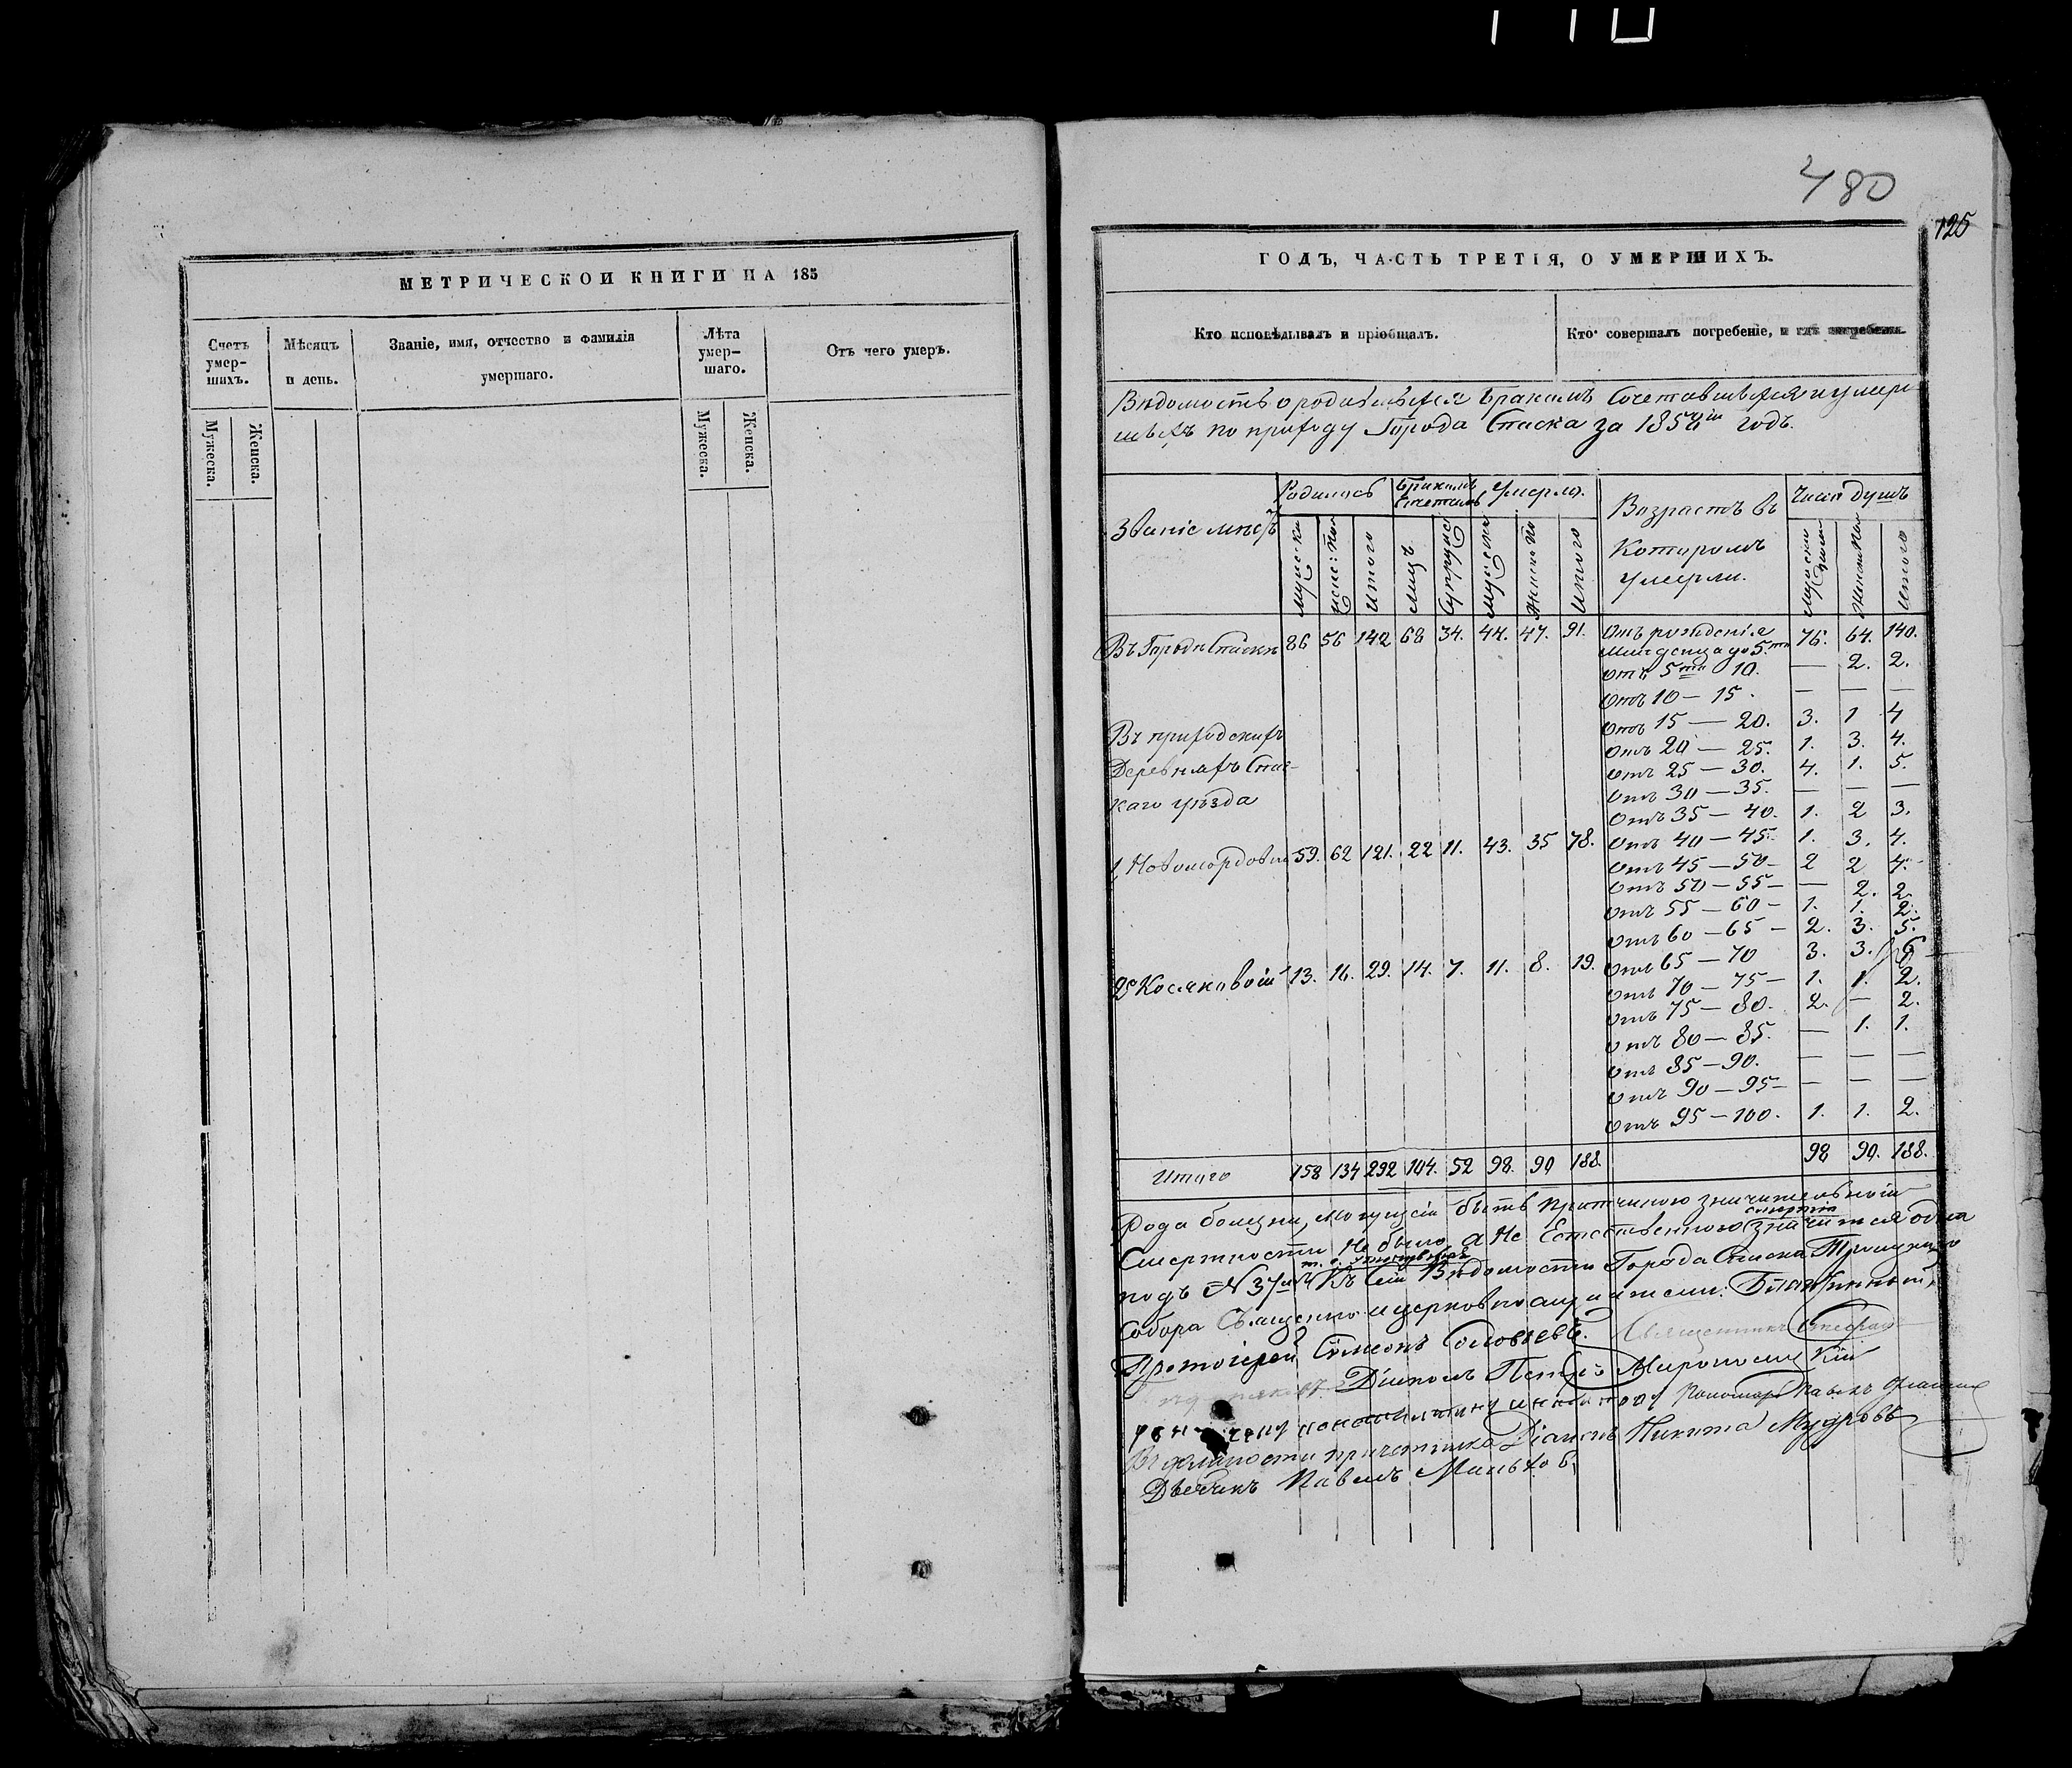 480
125
МЕТРИЧЕСКОЙ КНИГИ НА 185
Счетъ умер-шихъ.
Мѣсяцъ и день.
Званіе, имя, отчество и фамилія умершаго.
Лѣта умер-шаго.
Отъ чего умеръ.
Мужеска.
Женска.
Мужеска.
Женска.
ГОДЪ, ЧАСТЬ ТРЕТІЯ, О УМЕРШИХЪ.
Кто исповѣдывалъ и пріобщалъ.
Кто совершалъ погребеніе, и гдѣ погребены.
Вѣдомость о родившихся бракомъ сочетавшихся и умер-
шихъ по приходу города Спаска за 1858й годъ.
Званіе мѣстъ
Родилось
Бракомъ сочетал.
Умерло.
Возрастъ въ
Которомъ
умерли.
Число душъ
Итого
Лицъ
Супруж
Итого
Итого
Въ Городѣ Спаскѣ 86 56 142 68 34. 44. 47. 91.
Отъ рожденія
младенца до 5ти 76. 64. 140.
отъ 5ти 10. — 2. 2.
Отъ 10 — 15. — — —
Отъ 15 — 20. 3. 1 4
Отъ 20 — 25. 1. 3. 4.
Отъ 25 — 30. 4. 1. 5.
Отъ 30 — 35. — — —
Отъ 35 — 40. 1. 2 3.
Отъ 40 — 45. 1. 3. 4.
Отъ 45 — 50 — 2 2 4.
Отъ 50 — 55 — — 2. 2.
Отъ 55 — 60 — 1. 1. 2.
Отъ 60 — 65 — 2. 3. 5.
Отъ 65 — 70 3. 3. 6
Отъ 70 — 75 — 1. 1. 2.
Отъ 75 — 80. 2. — 2.
Отъ 80 — 85. — 1. 1.
Отъ 85 — 90. — — —
Отъ 90 — 95 — — — —
Отъ 95 — 100. 1. 1. 2.
Въ приходскихъ
Деревняхъ Спас-
каго уѣзда
1, Новомордовѣ 59. 62 121. 22 11. 43. 35 78.
2 Косяковой 13. 16. 29. 14. 7. 11. 8. 19.
Итого 158 134 292 104. 52 98. 90 188. 98 90. 188.
Рода болезни, могущей быть притчиною значительной
Смертности не было, а не Естественною смертію значится одна
подъ № 37 Къ сей Вѣдомости Города Спаска Троицкаго
Собора Священно и церковнослужители: Благочинный,
Протоіерей Симеонъ Соловьевъ. Священникъ
Діаконъ Петръ Миропольскій
Пономарь Павелъ
Въ должности причетника Діаконъ Никита Мудровъ
Дьячекъ Павелъ Маньков